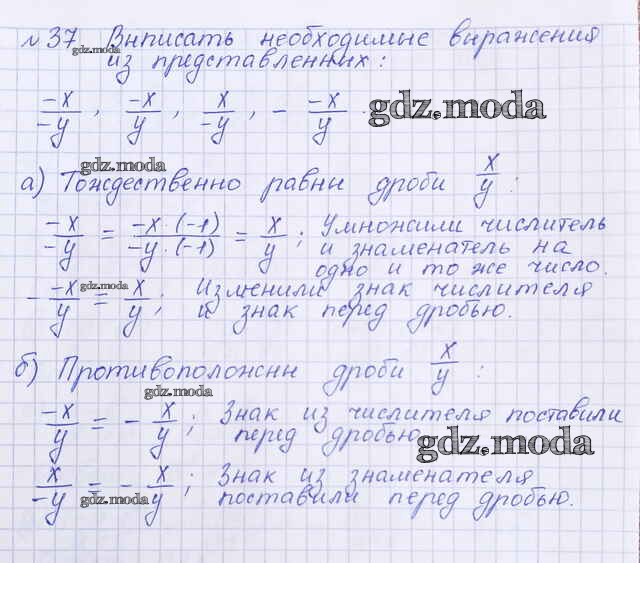 № 37 Выписать необходимые выражения
gdz.moda
из представленных:
-x/-y, -x/y, x/-y, - -x/y.
gdz.moda
gdz.moda
а) Тождественно равны дроби x/y:
-x/-y = -x·(-1)/-y·(-1) = x/y; Умножили числитель
и знаменатель на
одно и то же число.
- -x/y = x/y; Изменили знак числителя
gdz.moda
и знак перед дробью.
б) Противоположны дроби x/y:
gdz.moda
-x/y = - x/y; Знак из числителя поставили
перед дробью.
gdz.moda
x/-y = - x/y; Знак из знаменателя
gdz.moda
поставили перед дробью.